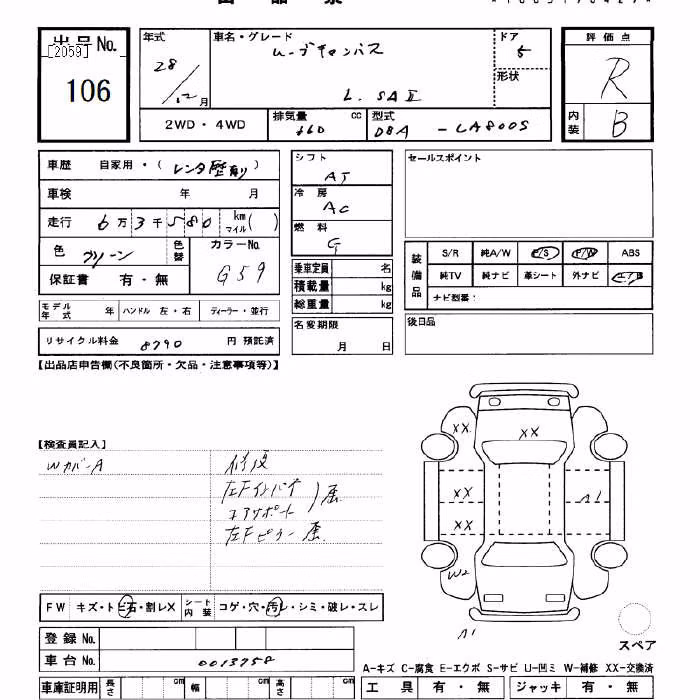 出品No.
[2059]
106
年式
28/12月
車名・グレード
ムーヴキャンバス
L. SAⅡ
ドア
5
形状
2WD・4WD
排気量 cc
660
型式
DBA - LA800S
評価点
R
内装
B
車歴 自家用・(レンタ歴有り)
車検 年 月
走行 6万3千580 km マイル( )
色 グリーン
色替
カラーNo.
G59
保証書 有・無
モデル年式 年
ハンドル 左・右
ディーラー・並行
リサイクル料金 8790 円 預託済
シフト
AT
冷房
AC
燃料
G
乗車定員 名
積載量 kg
総重量 kg
名変期限
月 日
セールスポイント
装備品
S/R 純A/W P/S P/W ABS
純TV 純ナビ 革シート 外ナビ ETC
ナビ型番：
後日品
【出品店申告欄(不良箇所・欠品・注意事項等)】
【検査員記入】
Wカバー A
修復
左Fインパネ
コアサポート 歪
左Fピラー 歪
FW キズ・トビ石・割レX
シート内装 コゲ・穴・汚レ・シミ・破レ・スレ
登録No.
車台No. 0013758
車庫証明用 長さ cm 幅 cm 高さ cm
XX
XX
XX
XX
A1
W2
A1
スペア
A-キズ C-腐食 E-エクボ S-サビ U-凹ミ W-補修 XX-交換済
工具 有・無 ジャッキ 有・無